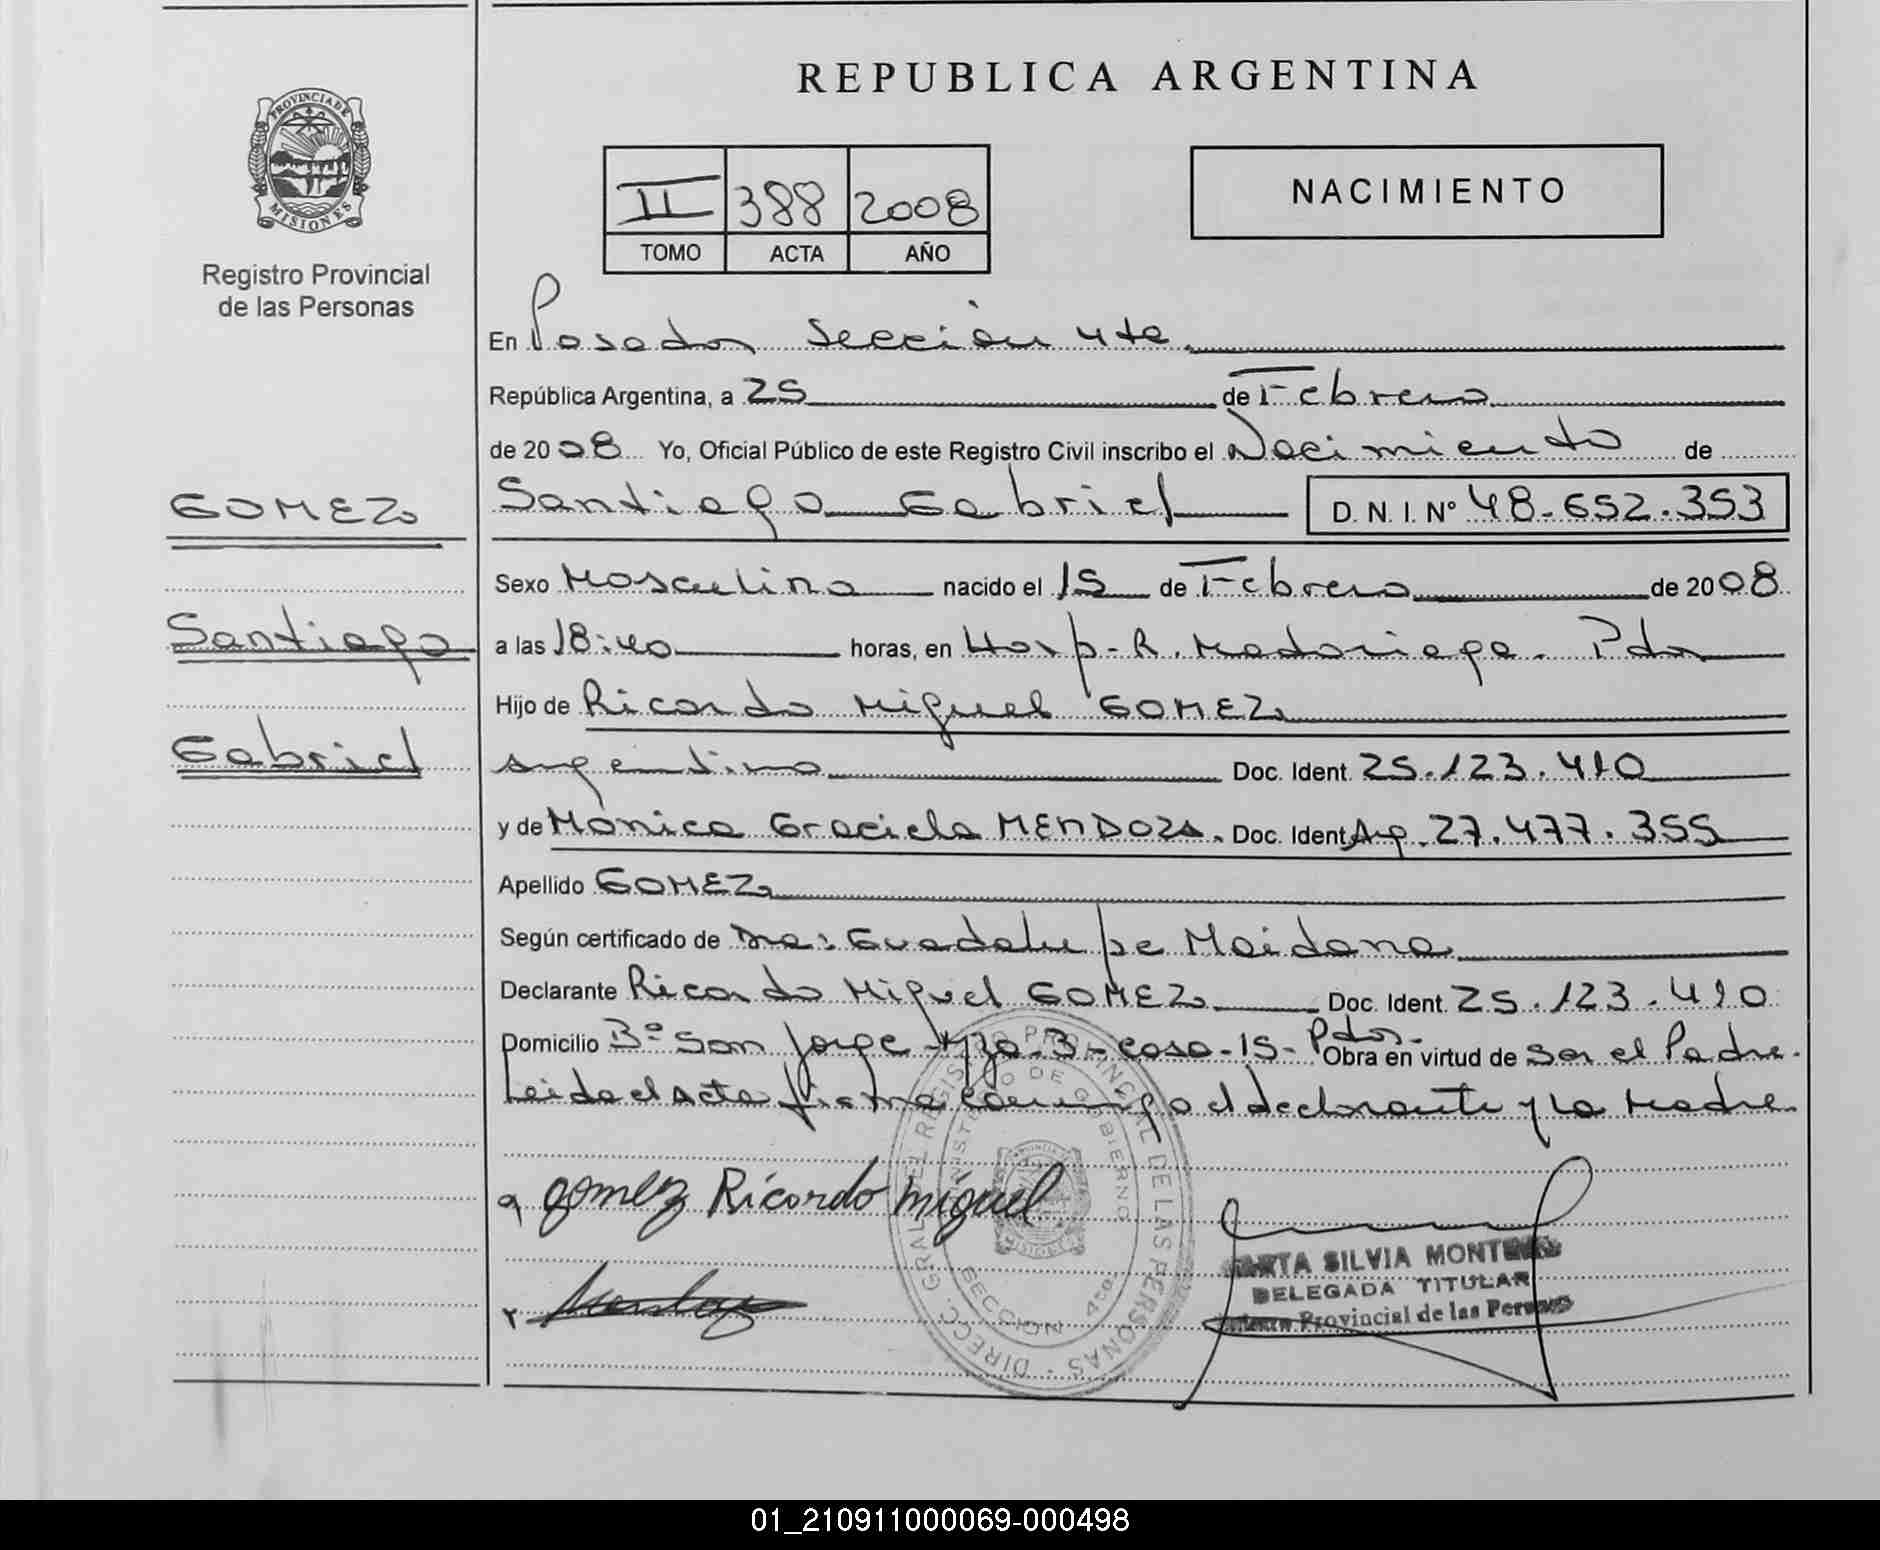 REPUBLICA ARGENTINA
PROVINCIA DE MISIONES
Registro Provincial
de las Personas
II 388 2008
TOMO ACTA AÑO
NACIMIENTO
En Posadas Sección 4ta.
República Argentina, a 25 de Febrero
de 2008 Yo, Oficial Público de este Registro Civil inscribo el Nacimiento de
GOMEZ
Santiago Gabriel D. N. I. N° 48.652.353
Sexo Masculino nacido el 15 de Febrero de 2008
Santiago
a las 18:40 horas, en Hosp. R. Madariaga. Pdas
Hijo de Ricardo Miguel GOMEZ
Gabriel
Argentino Doc. Ident. 25.123.410
y de Mónica Graciela MENDOZA. Doc. Ident. Arg. 27.477.355
Apellido GOMEZ
Según certificado de Dra: Guadalupe Maidana
Declarante Ricardo Miguel GOMEZ Doc. Ident. 25.123.410
Domicilio B° San Jorge Mza. 3 - casa - 15 - Pdas. Obra en virtud de ser el Padre.
Leida el Acta firma conmigo el declarante y la Madre.
Gomez Ricardo Miguel
DIRECC. GRAL. EL REGISTRO PROVINCIAL DE LAS PERSONAS
MINISTERIO DE GOBIERNO
SECCION 4ta
MARTA SILVIA
DELEGADA TITULAR
Provincial de las Personas
01_210911000069-000498